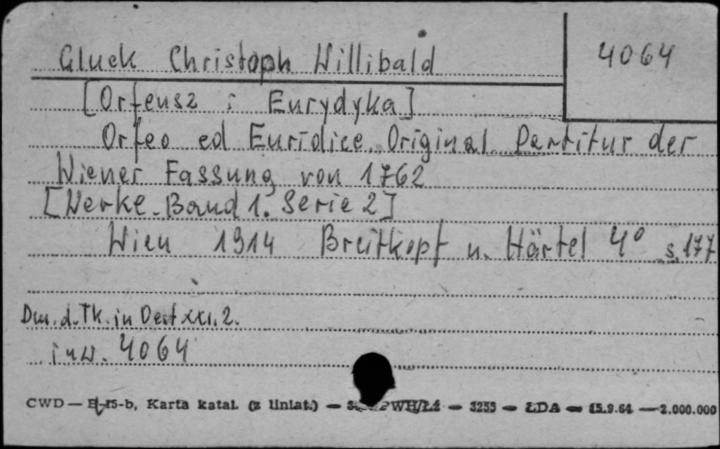 Gluck Christoph Willibald
4064
[Orfeusz i Eurydyka]
Orfeo ed Euridice. Original Partitur der
Wiener Fassung von 1762
[Werke. Band 1. Serie 2]
Wien 1914 Breitkopf u. Härtel 4° s. 177
d. Tk. in Oest XXI, 2.
inw. 4064
CWD — -15-b, Karta katal. (z liniat.) — PWH/Łź — 3255 — ŁDA — 15.9.64 — 2.000.000